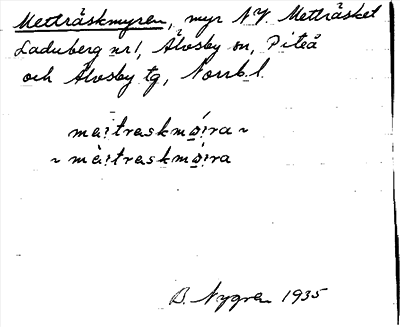 Metträskmyren, myr N.V. Metträsket
Laduberg nr 1, Älvsby sn, Piteå
och Älvsby tg, Norrb. l.
mei̯traskmǿi̯ra ~
~ mèi̯traskmǿi̯ra
B. Nygren 1935